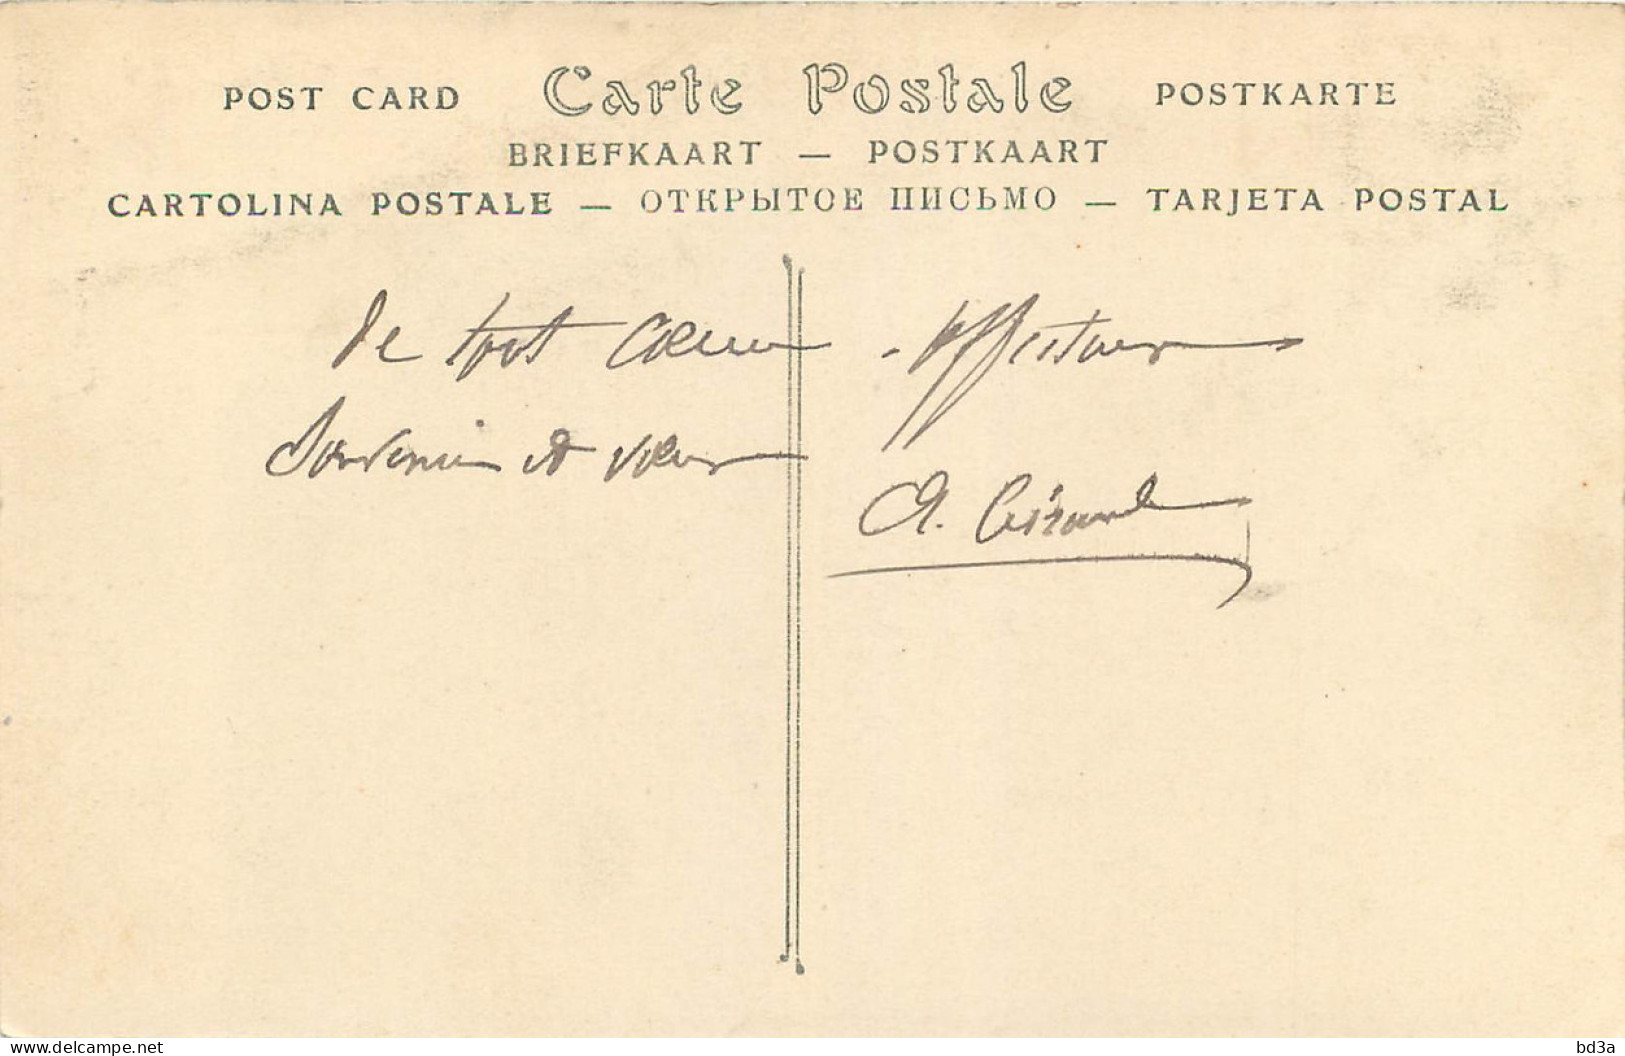 POST CARD Carte Postale POSTKARTE
BRIEFKAART — POSTKAART
CARTOLINA POSTALE — ОТКРЫТОЕ ПИСЬМО — TARJETA POSTAL
De tout Coeur
Souvenir et voeux
A. Girard
www.delcampe.net
bd3a